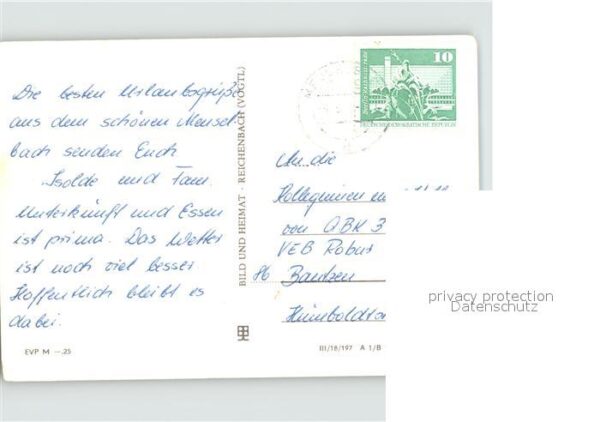 Die besten Urlaubsgrüße
aus dem schönen Mensel-
bach senden Euch
Isolde und Fam.
Unterkunft und Essen
ist prima. Das Wetter
ist noch viel besser
Hoffentlich bleibt es
dabei.
EVP M —.25
BILD UND HEIMAT · REICHENBACH (VOGTL)
10
DEUTSCHE DEMOKRATISCHE REPUBLIK
An die
Kolleginnen
von ABK 3
VEB Robur
86 Bautzen
Humboldt
III/18/197 A 1/B
privacy protection
Datenschutz